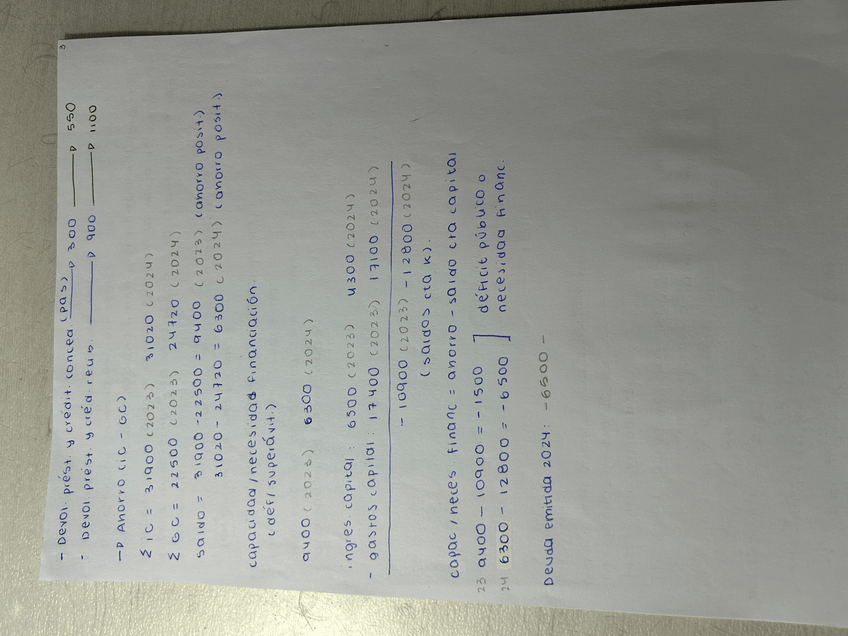 3
- Devol. prést. y crédit. conced (pas) → 300 → 550
- Devol. prést. y créd. reus. → 900 → 1100
→ Ahorro (IC - GC)
Σ IC = 31900 (2023) 31020 (2024)
Σ GC = 22500 (2023) 24720 (2024)
saldo = 31900 - 22500 = 9400 (2023) (ahorro posit)
31020 - 24720 = 6300 (2024) (ahorro posit.)
capacidad/necesidad financiación.
(déf/superávit.)
9400 (2023) 6300 (2024)
ingres capital: 6500 (2023) 4300 (2024)
- gastos capital: 17400 (2023) 17100 (2024)
- 10900 (2023) - 12800 (2024)
(saldos cta K).
capac/neces financ = ahorro - saldo cta capital
23 9400 - 10900 = -1500 ] déficit público o
24 6300 - 12800 = -6500 ] necesidad financ.
Deuda emitida 2024: -6500 -